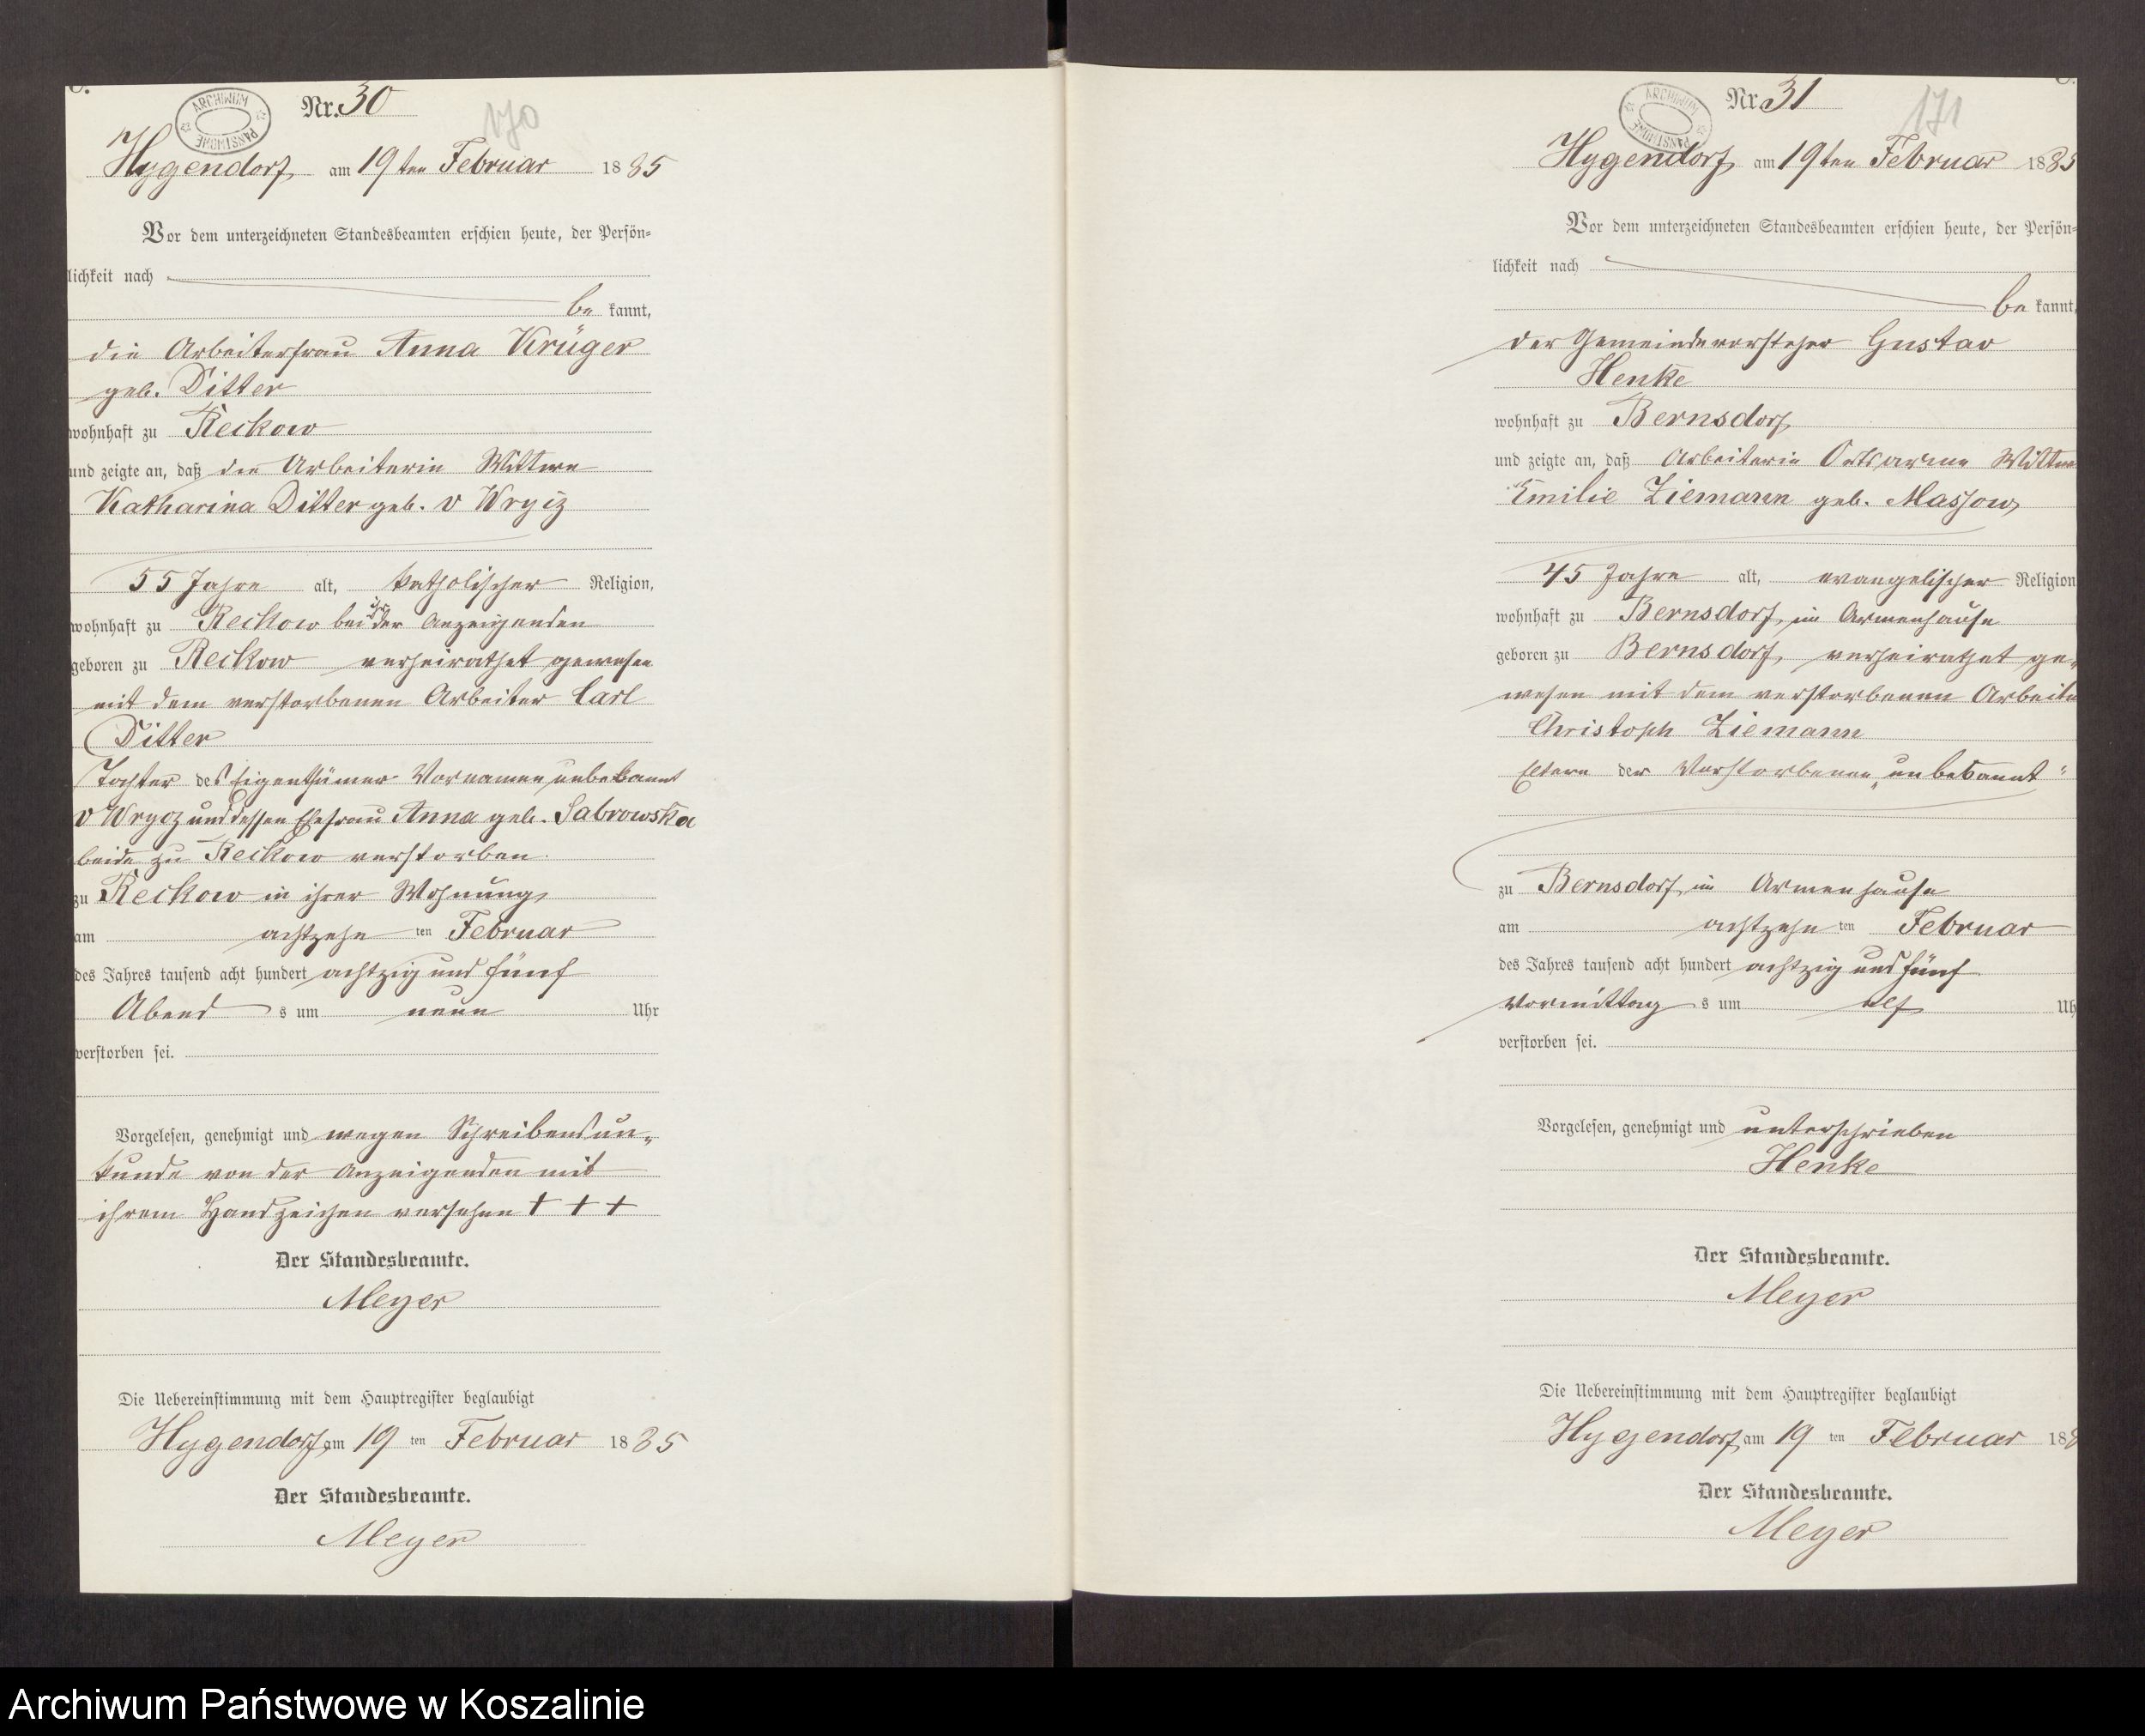 C.
ARCHIWUM PAŃSTWOWE
Nr. 30
170
Hygendorf am 19ten Februar 1885
Vor dem unterzeichneten Standesbeamten erschien heute, der Persön=
lichkeit nach
be kannt,
die Arbeiterfrau Anna Krüger
geb. Ditter
wohnhaft zu Reckow
und zeigte an, daß die Arbeiterin Wittwe
Katharina Ditter geb. v Wrycz
55 Jahre alt, katholischer Religion,
wohnhaft zu Reckow bei der Anzeigenden
geboren zu Reckow verheirathet gewesen
mit dem verstorbenen Arbeiter Carl
Ditter
Tochter des Eigenthümer Vornamen unbekannt
v Wrycz und dessen Ehefrau Anna geb. Sabrowska
beide zu Reckow verstorben.
zu Reckow in ihrer Wohnung
am achtzehn ten Februar
des Jahres tausend acht hundert achtzig und fünf
Abend s um neun Uhr
verstorben sei.
Vorgelesen, genehmigt und wegen Schreibensun=
kunde von der Anzeigenden mit
ihrem Handzeichen versehen + + +
Der Standesbeamte.
Meyer
Die Uebereinstimmung mit dem Hauptregister beglaubigt
Hygendorf am 19 ten Februar 1885
Der Standesbeamte.
Meyer
C.
ARCHIWUM PAŃSTWOWE
Nr. 31
171
Hygendorf am 19ten Februar 1885
Vor dem unterzeichneten Standesbeamten erschien heute, der Persön=
lichkeit nach
be kannt,
der Gemeindevorsteher Gustav
Henke
wohnhaft zu Bernsdorf
und zeigte an, daß Arbeiterin Ortsarme Wittwe
Emilie Ziemann geb. Massow,
45 Jahre alt, evangelischer Religion
wohnhaft zu Bernsdorf, im Armenhause
geboren zu Bernsdorf, verheirathet ge=
wesen mit dem verstorbenen Arbeite
Christoph Ziemann
Eltern der Verstorbenen „unbekannt“
zu Bernsdorf, im Armenhause
am achtzehn ten Februar
des Jahres tausend acht hundert achtzig und fünf
Vormittag s um elf Uh
verstorben sei.
Vorgelesen, genehmigt und unterschrieben
Henke
Der Standesbeamte.
Meyer
Die Uebereinstimmung mit dem Hauptregister beglaubigt
Hygendorf am 19 ten Februar 188
Der Standesbeamte.
Meyer
Archiwum Państwowe w Koszalinie